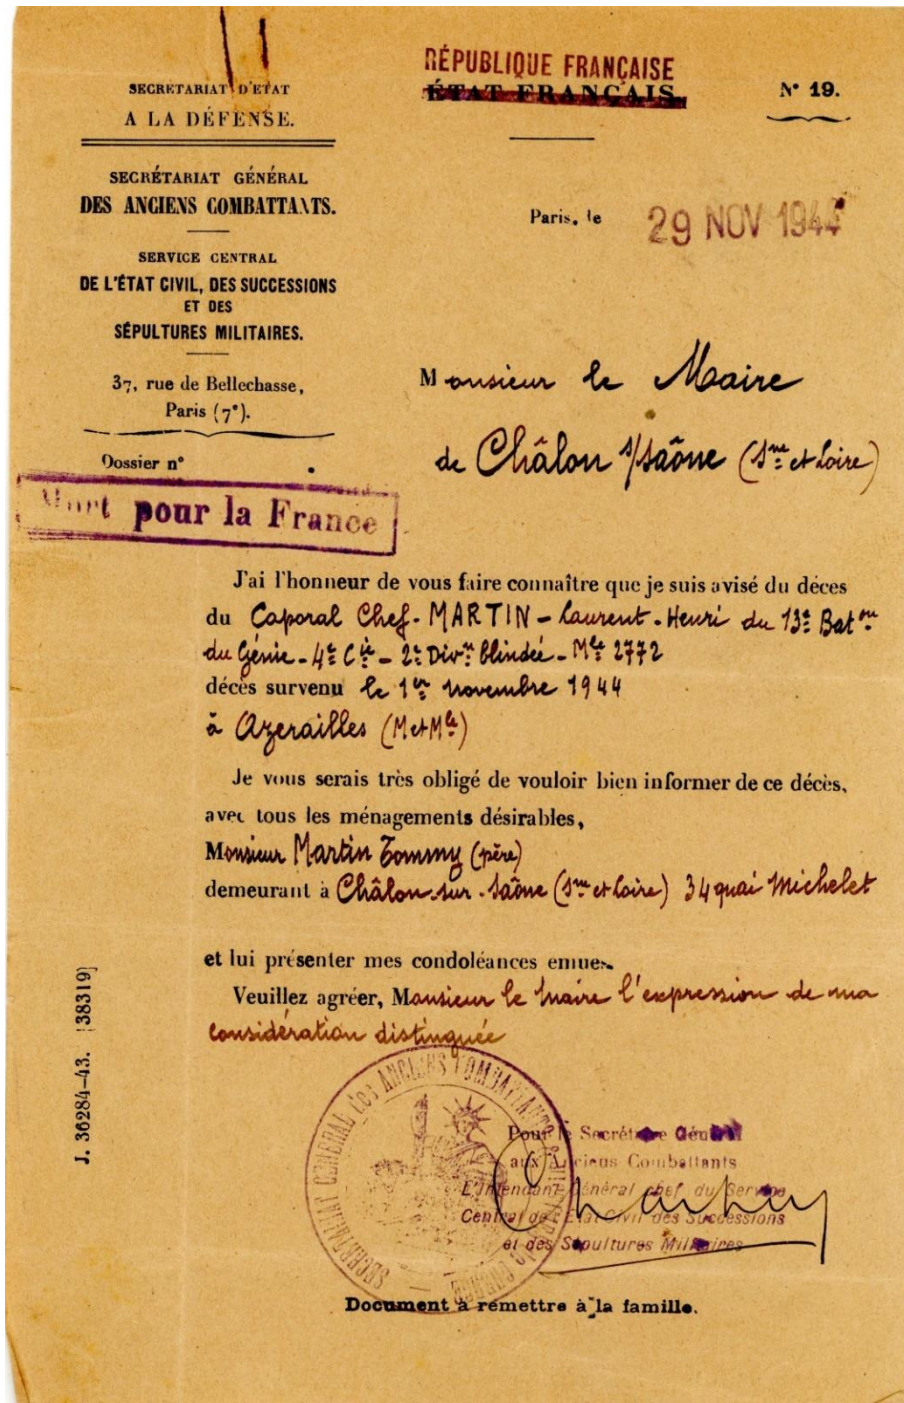 SECRÉTARIAT D'ÉTAT
A LA DÉFENSE.
RÉPUBLIQUE FRANÇAISE
ÉTAT FRANÇAIS
N° 19.
SECRÉTARIAT GÉNÉRAL
DES ANCIENS COMBATTANTS.
SERVICE CENTRAL
DE L'ÉTAT CIVIL, DES SUCCESSIONS
ET DES
SÉPULTURES MILITAIRES.
37, rue de Bellechasse,
Paris (7e).
Dossier n°
Paris, le 29 NOV 1944
Monsieur le Maire
de Châlon s/Saône (Sne et Loire)
Mort pour la France
J'ai l'honneur de vous faire connaître que je suis avisé du décès
du Caporal Chef - MARTIN - Laurent - Henri du 13e Baton
du Génie - 4e Cie - 2e Divon blindée - Mle 2772
décès survenu le 1er novembre 1944
à Azerailles (M et Mlle)
Je vous serais très obligé de vouloir bien informer de ce décès,
avec tous les ménagements désirables,
Monsieur Martin Tommy (père)
demeurant à Châlon-sur-Saône (Sne et Loire) 34 quai Michelet
et lui présenter mes condoléances émues.
Veuillez agréer, Monsieur le Maire l'expression de ma
considération distinguée
SECRÉTARIAT GÉNÉRAL DES ANCIENS COMBATTANTS
Pour le Secrétaire Général
aux Anciens Combattants
L'Intendant Général chef du Service
Central de l'État Civil des Successions
et des Sépultures Militaires
Document à remettre à la famille.
J. 36284-43. [38319]